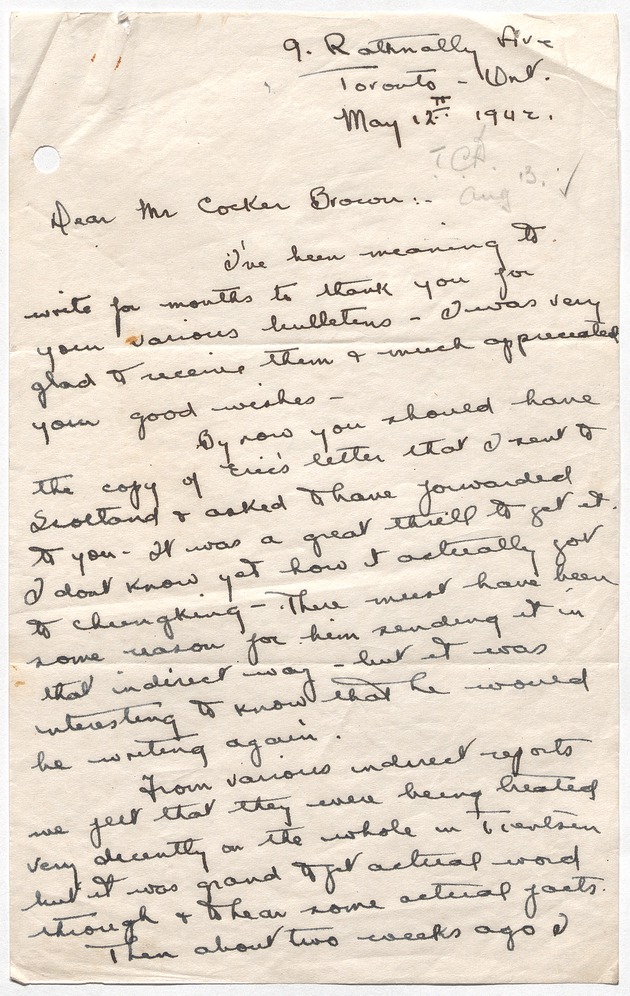 9. Rathnally Ave
Toronto - Ont.
May 12th 1942.
TCA.
Aug 13. ✓
Dear Mr Cocker Brown:-
I've been meaning to
write for months to thank you for
your various bulletens - I was very
glad to receive them & much appreciated
your good wishes -
By now you should have
the copy of Eric's letter that I sent to
Scotland & asked to have forwarded
to you - It was a great thrill to get it.
I dont know yet how it actually got
to Chungking - There must have been
some reason for him sending it in
that indirect way - but it was
interesting to know that he would
be writing again.
From various indirect reports
we felt that they were being treated
very decently on the whole in Tientsin
but it was grand to get actual word
through & to hear some actual facts.
Then about two weeks ago I